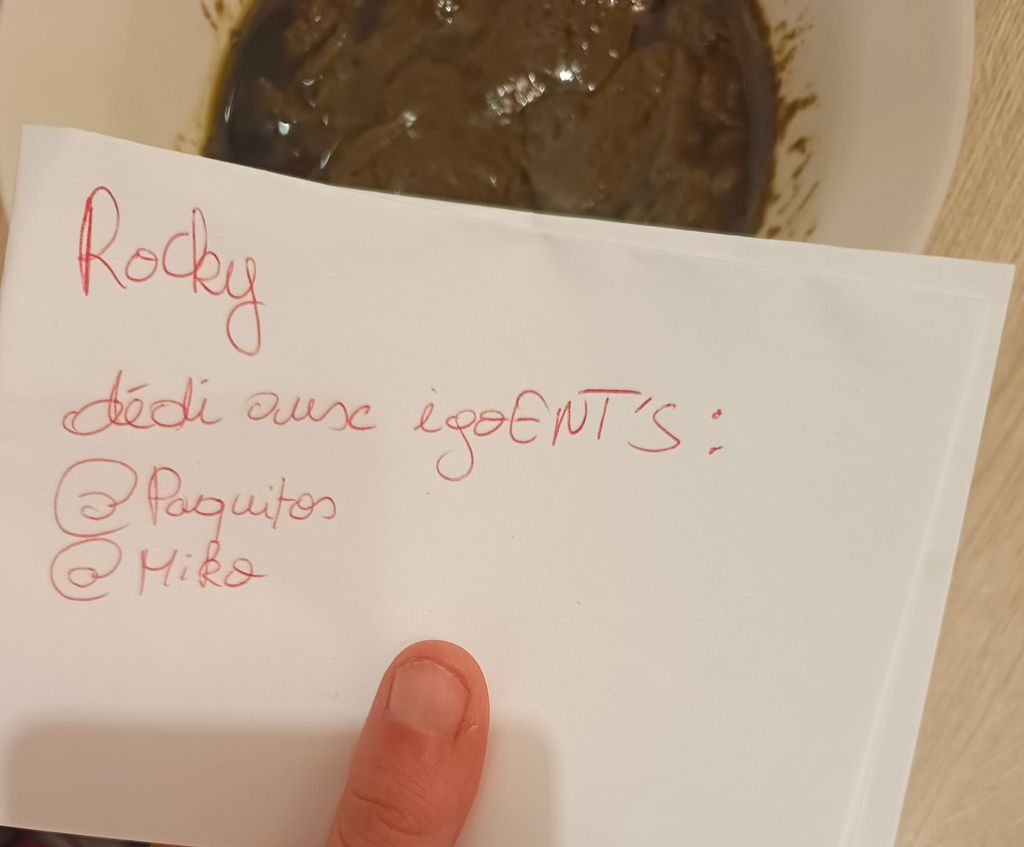 Rocky
dédi aux egoENT'S :
@Paquitos
@Miko